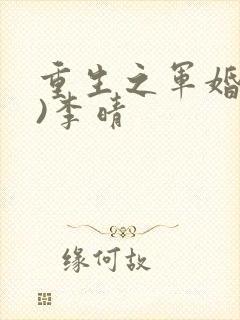 重生之军婚
)李晴
缘何故